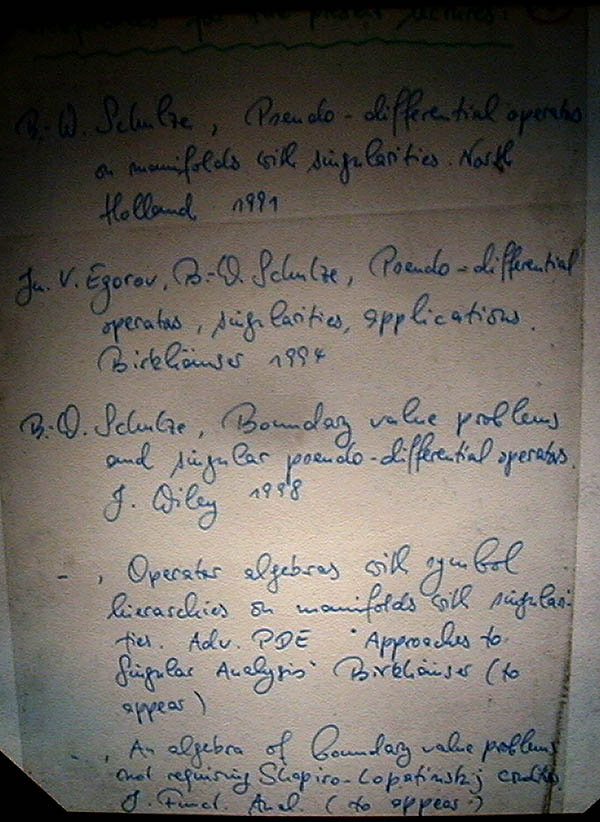 for the present lectures:
B.-W. Schulze, Pseudo-differential operators
on manifolds with singularities. North
Holland 1991
Ju. V. Egorov, B.-W. Schulze, Pseudo-differential
operators, singularities, applications.
Birkhäuser 1997
B.-W. Schulze, Boundary value problems
and singular pseudo-differential operators.
J. Wiley 1998
- , Operator algebras with symbol
hierarchies on manifolds with singulari-
ties. Adv. PDE "Approaches to
Singular Analysis" Birkhäuser (to
appear)
- , An algebra of boundary value problems
not requiring Shapiro-Lopatinskij conditions
J. Funct. Anal. (to appear)